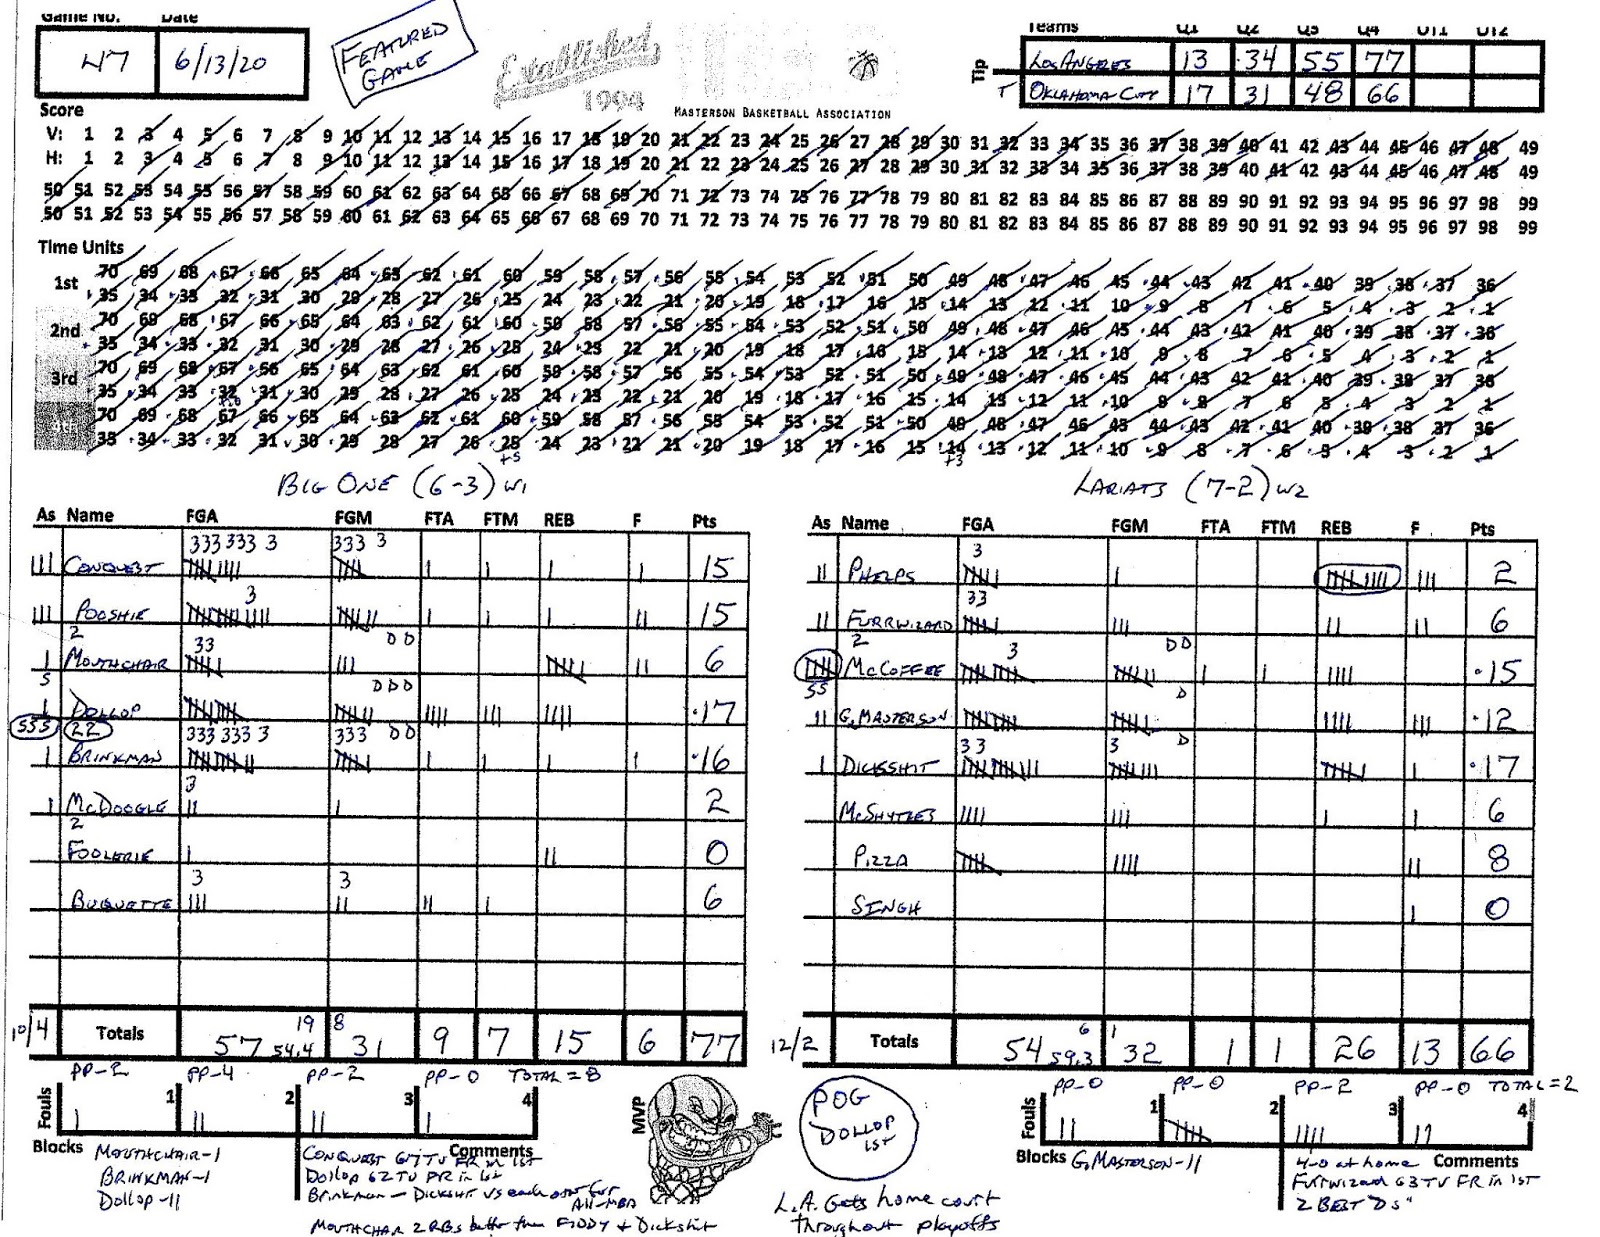 Game No. Date
47 6/13/20
FEATURED GAME
Established 1994
MASTERSON BASKETBALL ASSOCIATION
Teams Q1 Q2 Q3 Q4 OT1 OT2
Tip
LOS ANGELES 13 34 55 77
T OKLAHOMA CITY 17 31 48 66
Score
V: 1 2 3 4 5 6 7 8 9 10 11 12 13 14 15 16 17 18 19 20 21 22 23 24 25 26 27 28 29 30 31 32 33 34 35 36 37 38 39 40 41 42 43 44 45 46 47 48 49
H: 1 2 3 4 5 6 7 8 9 10 11 12 13 14 15 16 17 18 19 20 21 22 23 24 25 26 27 28 29 30 31 32 33 34 35 36 37 38 39 40 41 42 43 44 45 46 47 48 49
50 51 52 53 54 55 56 57 58 59 60 61 62 63 64 65 66 67 68 69 70 71 72 73 74 75 76 77 78 79 80 81 82 83 84 85 86 87 88 89 90 91 92 93 94 95 96 97 98 99
50 51 52 53 54 55 56 57 58 59 60 61 62 63 64 65 66 67 68 69 70 71 72 73 74 75 76 77 78 79 80 81 82 83 84 85 86 87 88 89 90 91 92 93 94 95 96 97 98 99
Time Units
1st 70 69 68 67 66 65 64 63 62 61 60 59 58 57 56 55 54 53 52 51 50 49 48 47 46 45 44 43 42 41 40 39 38 37 36
35 34 33 32 31 30 29 28 27 26 25 24 23 22 21 20 19 18 17 16 15 14 13 12 11 10 9 8 7 6 5 4 3 2 1
2nd 70 69 68 67 66 65 64 63 62 61 60 59 58 57 56 55 54 53 52 51 50 49 48 47 46 45 44 43 42 41 40 39 38 37 36
35 34 33 32 31 30 29 28 27 26 25 24 23 22 21 20 19 18 17 16 15 14 13 12 11 10 9 8 7 6 5 4 3 2 1
3rd 70 69 68 67 66 65 64 63 62 61 60 59 58 57 56 55 54 53 52 51 50 49 48 47 46 45 44 43 42 41 40 39 38 37 36
35 34 33 32 31 30 29 28 27 26 25 24 23 22 21 20 19 18 17 16 15 14 13 12 11 10 9 8 7 6 5 4 3 2 1
4th 70 69 68 67 66 65 64 63 62 61 60 59 58 57 56 55 54 53 52 51 50 49 48 47 46 45 44 43 42 41 40 39 38 37 36
35 34 33 32 31 30 29 28 27 26 25 24 23 22 21 20 19 18 17 16 15 14 13 12 11 10 9 8 7 6 5 4 3 2 1
+5 +3
BIG ONE (6-3) W1
As Name FGA FGM FTA FTM REB F Pts
333 333 3 333 3
CONQUEST 15
3
POOSHIE 15
2 33 DD
MOUTHCHAIR 6
5 DDD
DOLLOP 17
555 22 333 333 3 333 DD
BRINKMAN 16
3
McDOOGLE 2
2
FOOLERIE 0
3 3
BUQUETTE 6
10/4 Totals 19 57 54.4 8 31 9 7 15 6 77
PP-2 PP-4 PP-2 PP-0 TOTAL=8
Fouls 1 2 3 4
Blocks MOUTHCHAIR-1
BRINKMAN-1
Dollop-11
Comments
CONQUEST 67 TV FR in 1st
Dollop 62 TV PR in 1st
Brinkman - Dickshit vs each other for All-MBA
MOUTHCHAR 2 RBs better than FIDDY + Dickshit
MVP
POG
DOLLOP
1st
L.A. Gets home court
throughout playoffs
LARIATS (7-2) W2
As Name FGA FGM FTA FTM REB F Pts
3
PHELPS 2
33
FURRWIZARD 6
2 3 DD
McCOFFEE 15
55 D
G. MASTERSON 12
33 3 D
DICKSHIT 17
McSHYTLES 6
PIZZA 8
SINGH 0
12/2 Totals 6 54 59.3 1 32 1 1 26 13 66
PP-0 PP-0 PP-2 PP-0 TOTAL=2
Fouls 1 2 3 4
Blocks G. MASTERSON-11
Comments
4-0 at home
Furrwizard 63 TV FR in 1st
2 BEST "D's"